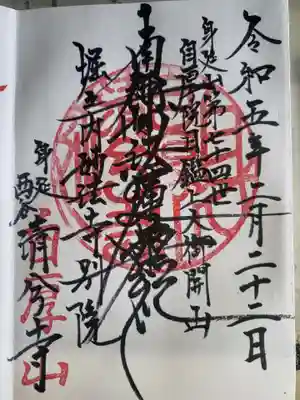 令和五年二月二十二日
身延山第七十四世
自厚院日鑑上人御開山
南無妙法蓮華経
堀之内妙法寺別院
身延
清兮寺